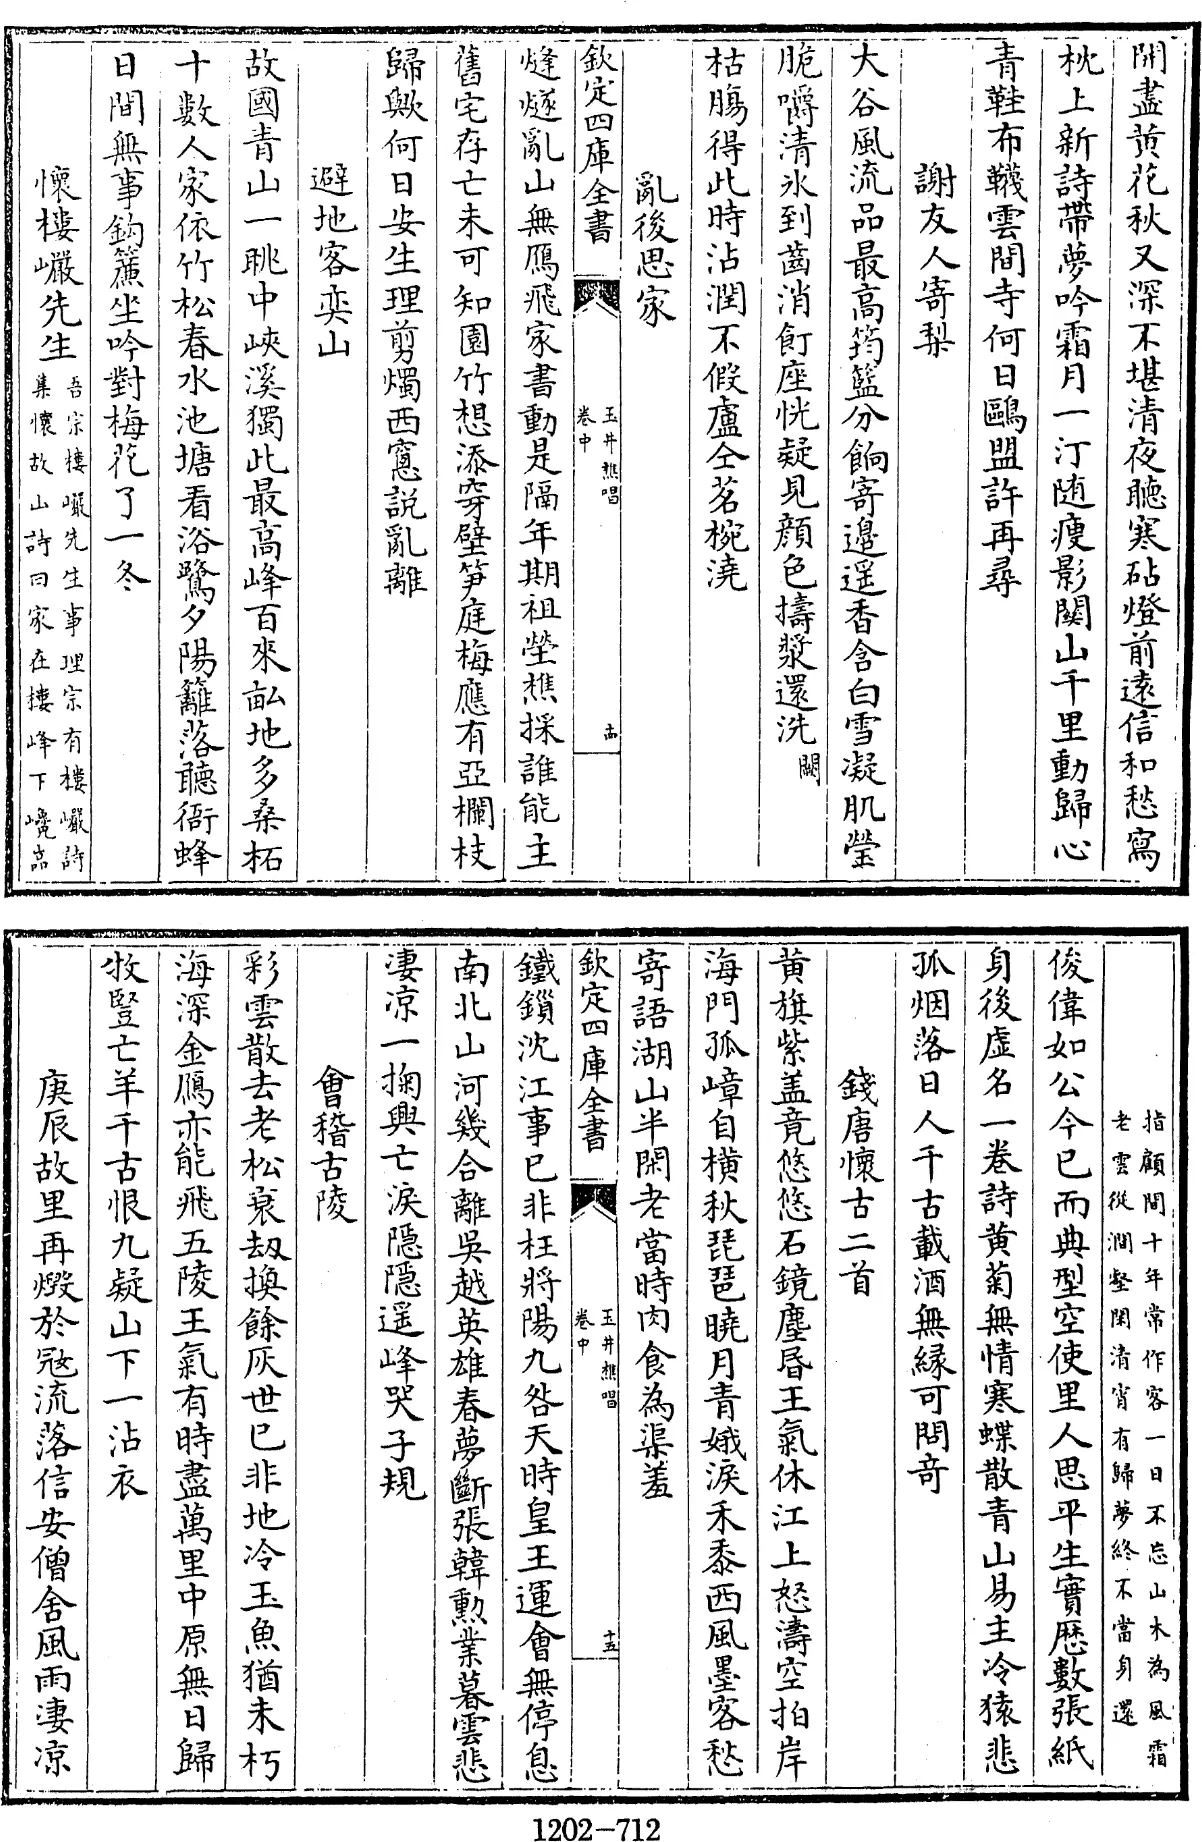 開盡黄花秋又深不堪清夜聴寒砧燈前遠信和愁寫
枕上新詩帶夢吟霜月一汀随瘦影關山千里動歸心
青鞋布韈雲間寺何日鷗盟許再尋
謝友人寄梨
大谷風流品最高筠籃分餉寄邊遥香含白雪凝肌瑩
脆嚼清氷到齒消飣座恍疑見顔色擣漿還洗闕
枯腸得此時沾潤不假盧仝茗椀澆
亂後思家
欽定四庫全書
玉井樵唱
卷中
十四
烽燧亂山無鴈飛家書動是隔年期祖塋樵採誰能主
舊宅存亡未可知園竹想添穿壁笋庭梅應有亞欄枝
歸歟何日安生理剪燭西窻説亂離
避地客奕山
故國青山一眺中峽溪獨此最高峰百來畆地多桑柘
十數人家依竹松春水池塘看浴鷺夕陽籬落聽衙蜂
日間無事鈎簾坐吟對梅花了一冬
懷樓巗先生
吾宗樓巗先生事理宗有樓巗詩
集懷故山詩曰家在樓峰下巉嵓
指顧間十年常作客一日不忘山木為風霜
老雲從澗壑閑清宵有歸夢終不當身還
俊偉如公今已而典型空使里人思平生實歴數張紙
身後虛名一卷詩黄菊無情寒蝶散青山易主冷猿悲
孤烟落日人千古載酒無縁可問竒
錢唐懷古二首
黄旗紫盖竟悠悠石鏡塵昏王氣休江上怒濤空拍岸
海門孤嶂自横秋琵琶曉月青娥淚禾黍西風墨客愁
寄語湖山半閑老當時肉食為渠羞
欽定四庫全書
玉井樵唱
卷中
十五
鐵鎖沈江事已非枉將陽九咎天時皇王運會無停息
南北山河幾合離吳越英雄春夢斷張韓勲業暮雲悲
凄凉一掬興亡淚隠隠遥峰哭子規
會稽古陵
彩雲散去老松衰刼換餘灰世已非地冷玉魚猶未朽
海深金鴈亦能飛五陵王氣有時盡萬里中原無日歸
牧豎亡羊千古恨九疑山下一沾衣
庚辰故里再燬於冦流落信安僧舍風雨凄凉
1202-712